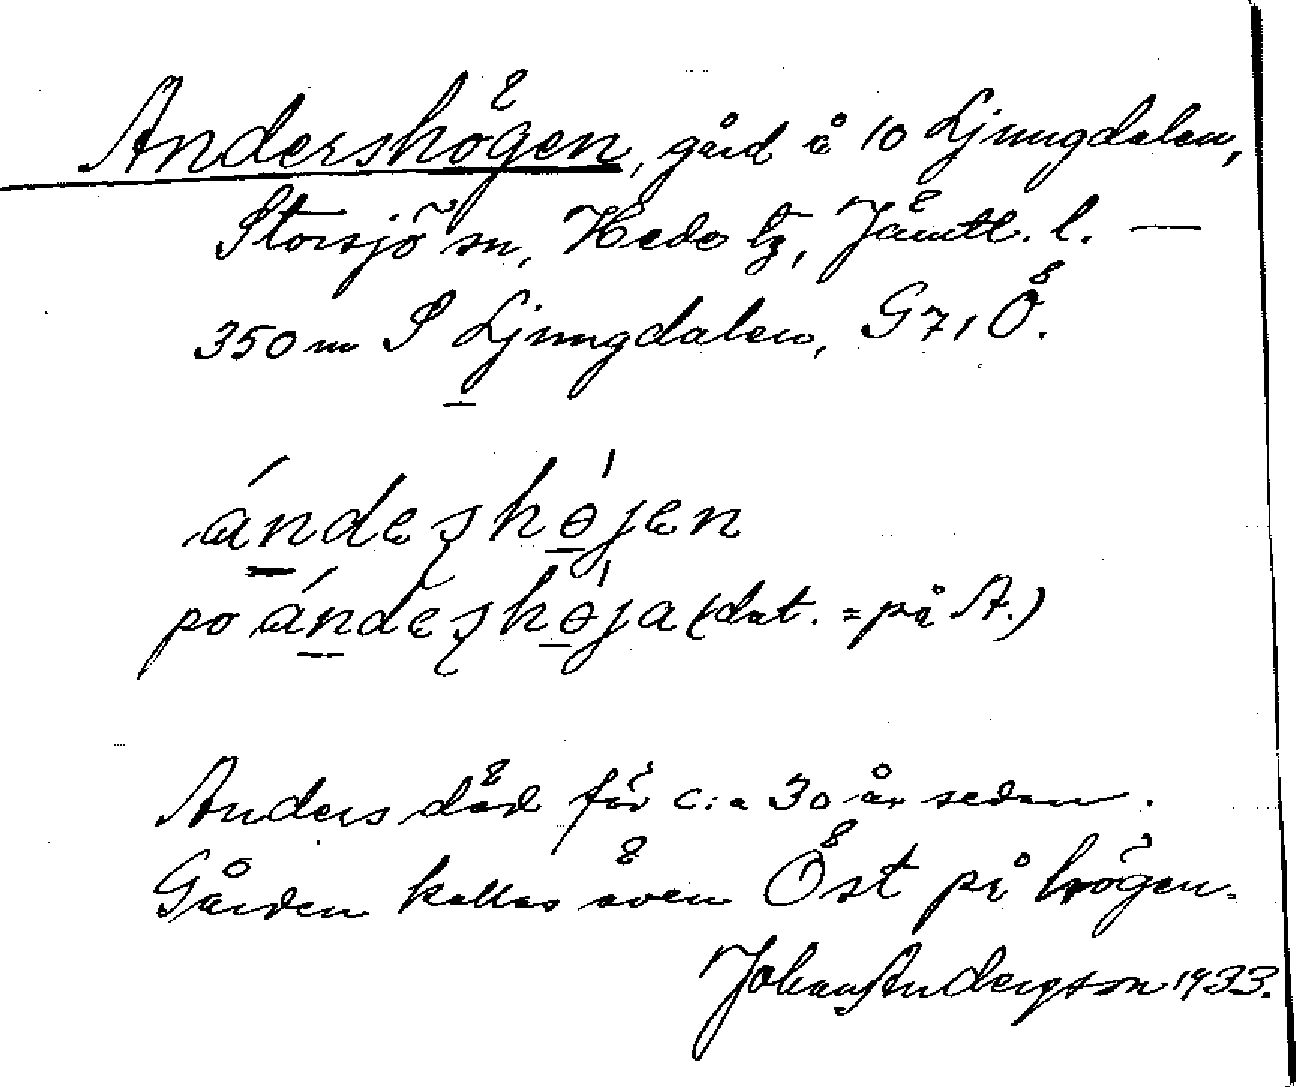 Andershögen, gård å 10 Ljungdalen,
Storsjö sn, Hede tg, Jämtl. l. —
350 m S Ljungdalen, G7, Ö.
ándeʂhǿjen
po ándeʂhǿja (dat. = på A.)
Anders död för c:a 30 år sedan.
Gården kallas även Öst på högen.
Johan Andersson 1933.